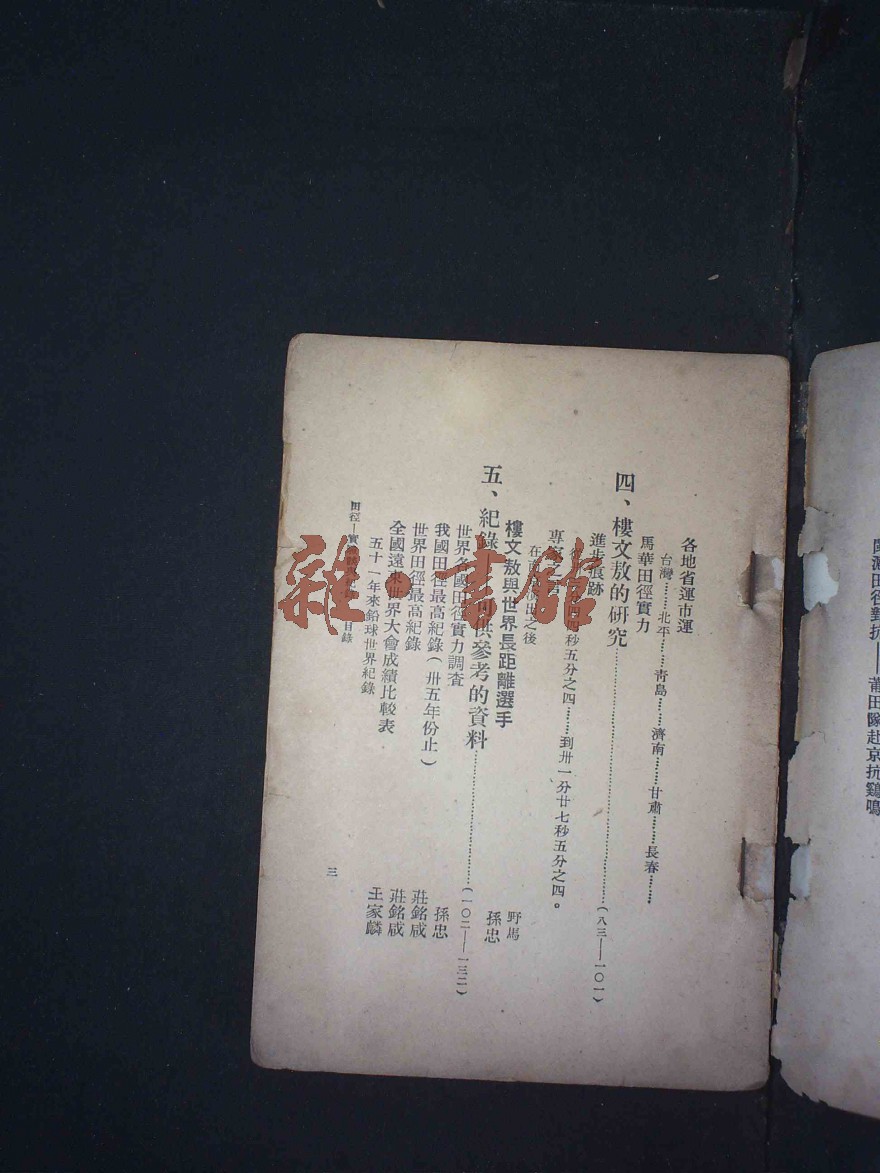 各地省運市運
台灣……北平……青島……濟南……甘肅……長春……
馬華田徑實力
四、樓文敖的研究……(八三——一〇一)
進步痕跡
秒五分之四……到卅一分廿七秒五分之四。
專家之
在 出之後
樓文敖與世界長距離選手 野馬
孫忠
五、紀錄 可供參考的資料……(一〇二——一三二)
世界各國田徑實力調查
我國田徑最高紀錄(卅五年份止) 孫忠
世界田徑最高紀錄 莊銘咸
全國遠東世界大會成績比較表 莊銘咸
五十一年來鉛球世界紀錄 王家麟
田徑—實 目錄
三
田徑對抗——莆田隊赴京抗鷄鳴
雜·書館